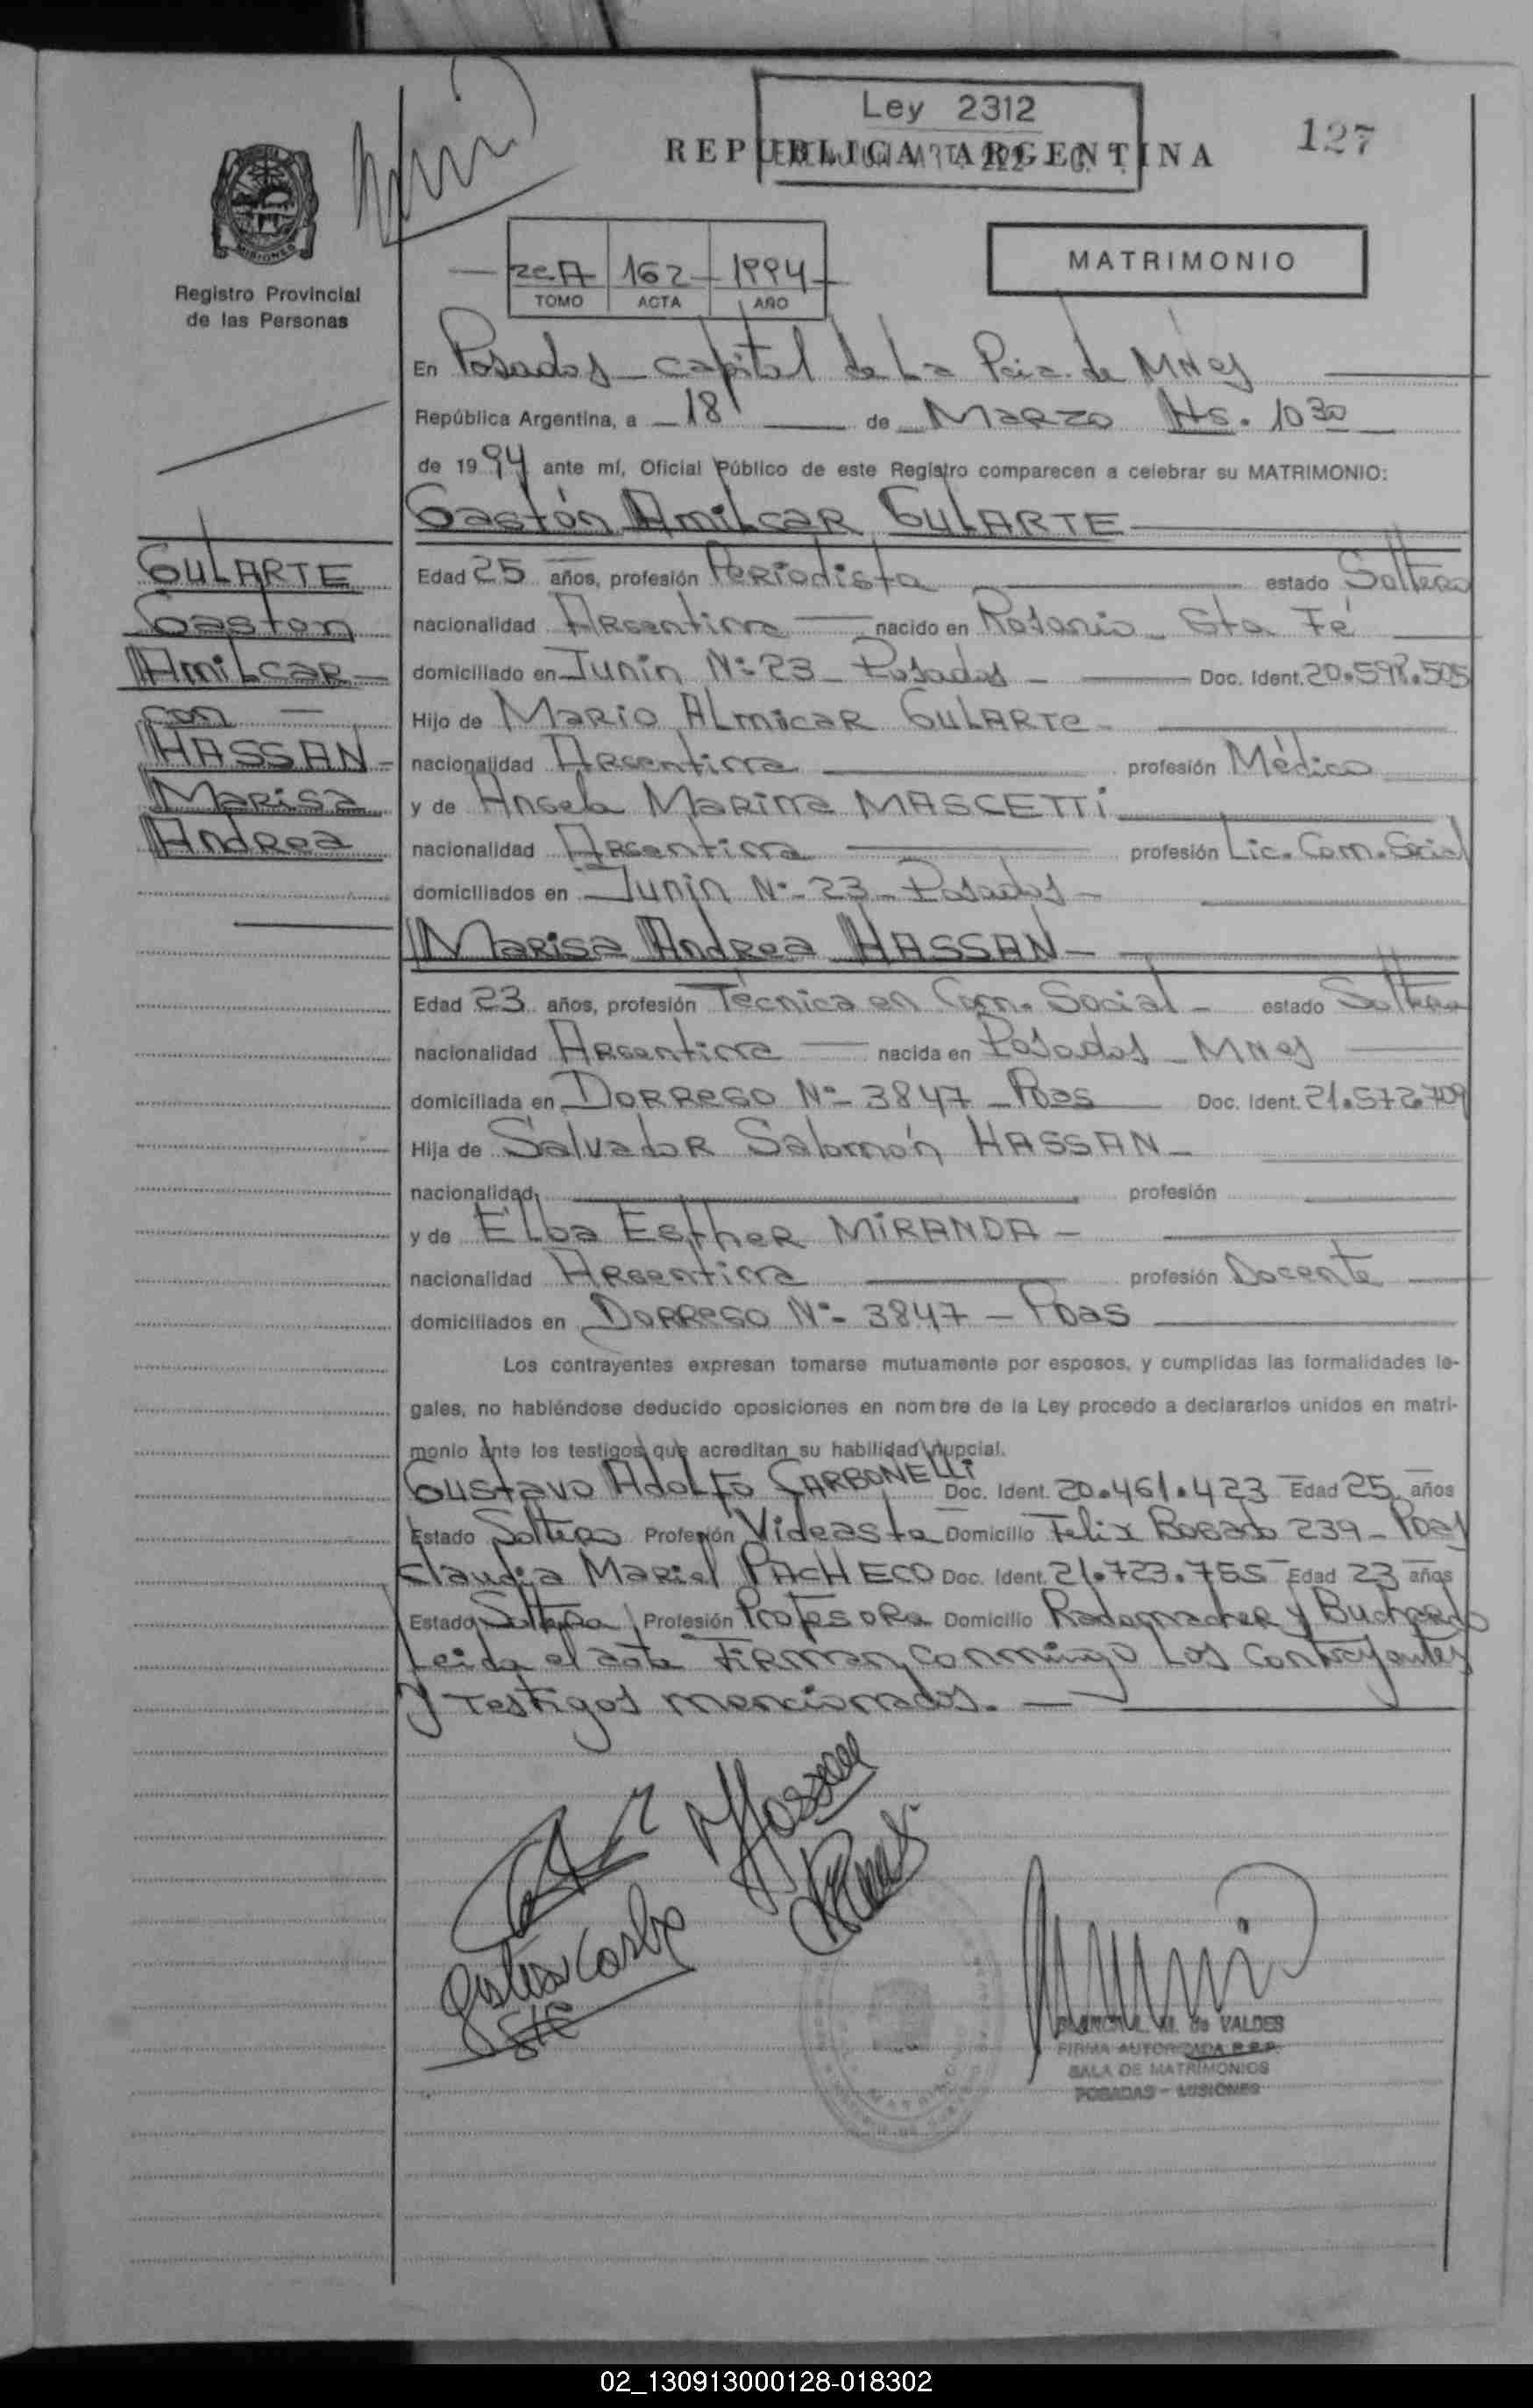 Ley 2312
REPUBLICA ARGENTINA
127
MISIONES
Registro Provincial
de las Personas
2do A 162 1994
TOMO ACTA AÑO
MATRIMONIO
En Posadas - capital de La Pcia. de MNes
República Argentina, a 18 de MARZO Hs. 10 30
de 1994 ante mí, Oficial Público de este Registro comparecen a celebrar su MATRIMONIO:
Gastón Amilcar GULARTE
GULARTE
Gaston
Amilcar
con
HASSAN
Marisa
Andrea
Edad 25 años, profesión Periodista estado Soltero
nacionalidad Argentina nacido en Rosario - Sta Fé
domiciliado en Junín Nº 23 - Posadas - Doc. Ident. 20.598.505
Hijo de Mario Almicar GULARTE -
nacionalidad Argentina profesión Médico
y de Angela Marina MASCETTI
nacionalidad Argentina profesión Lic. Com. Social
domiciliados en Junín Nº - 23 - Posadas -
Marisa Andrea HASSAN -
Edad 23 años, profesión Técnica en Com. Social - estado Soltera
nacionalidad Argentina nacida en Posadas - MNes
domiciliada en Dorrego Nº - 3847 - Pdas Doc. Ident. 21.572.709
Hija de Salvador Salomón HASSAN -
nacionalidad profesión
y de Elba Esther MIRANDA -
nacionalidad Argentina profesión Docente
domiciliados en Dorrego Nº - 3847 - Pdas
Los contrayentes expresan tomarse mutuamente por esposos, y cumplidas las formalidades le-
gales, no habiéndose deducido oposiciones en nombre de la Ley procedo a declararlos unidos en matri-
monio ante los testigos que acreditan su habilidad nupcial.
Gustavo Adolfo CARBONELLI Doc. Ident. 20.461.423 Edad 25 años
Estado Soltero Profesión Videasta Domicilio Felix Bogado 239 - Pdas
Claudia Mariel PACHECO Doc. Ident. 21.723.755 Edad 23 años
Estado Soltera Profesión Profesora Domicilio Rademacher y Buchardo
Leida el acta firman conmingo Los Contrayentes
y Testigos mencionados. -
BLANCA L. M. de VALDES
FIRMA AUTORIZADA R.P.P.
SALA DE MATRIMONIOS
POSADAS - MISIONES
02_130913000128-018302